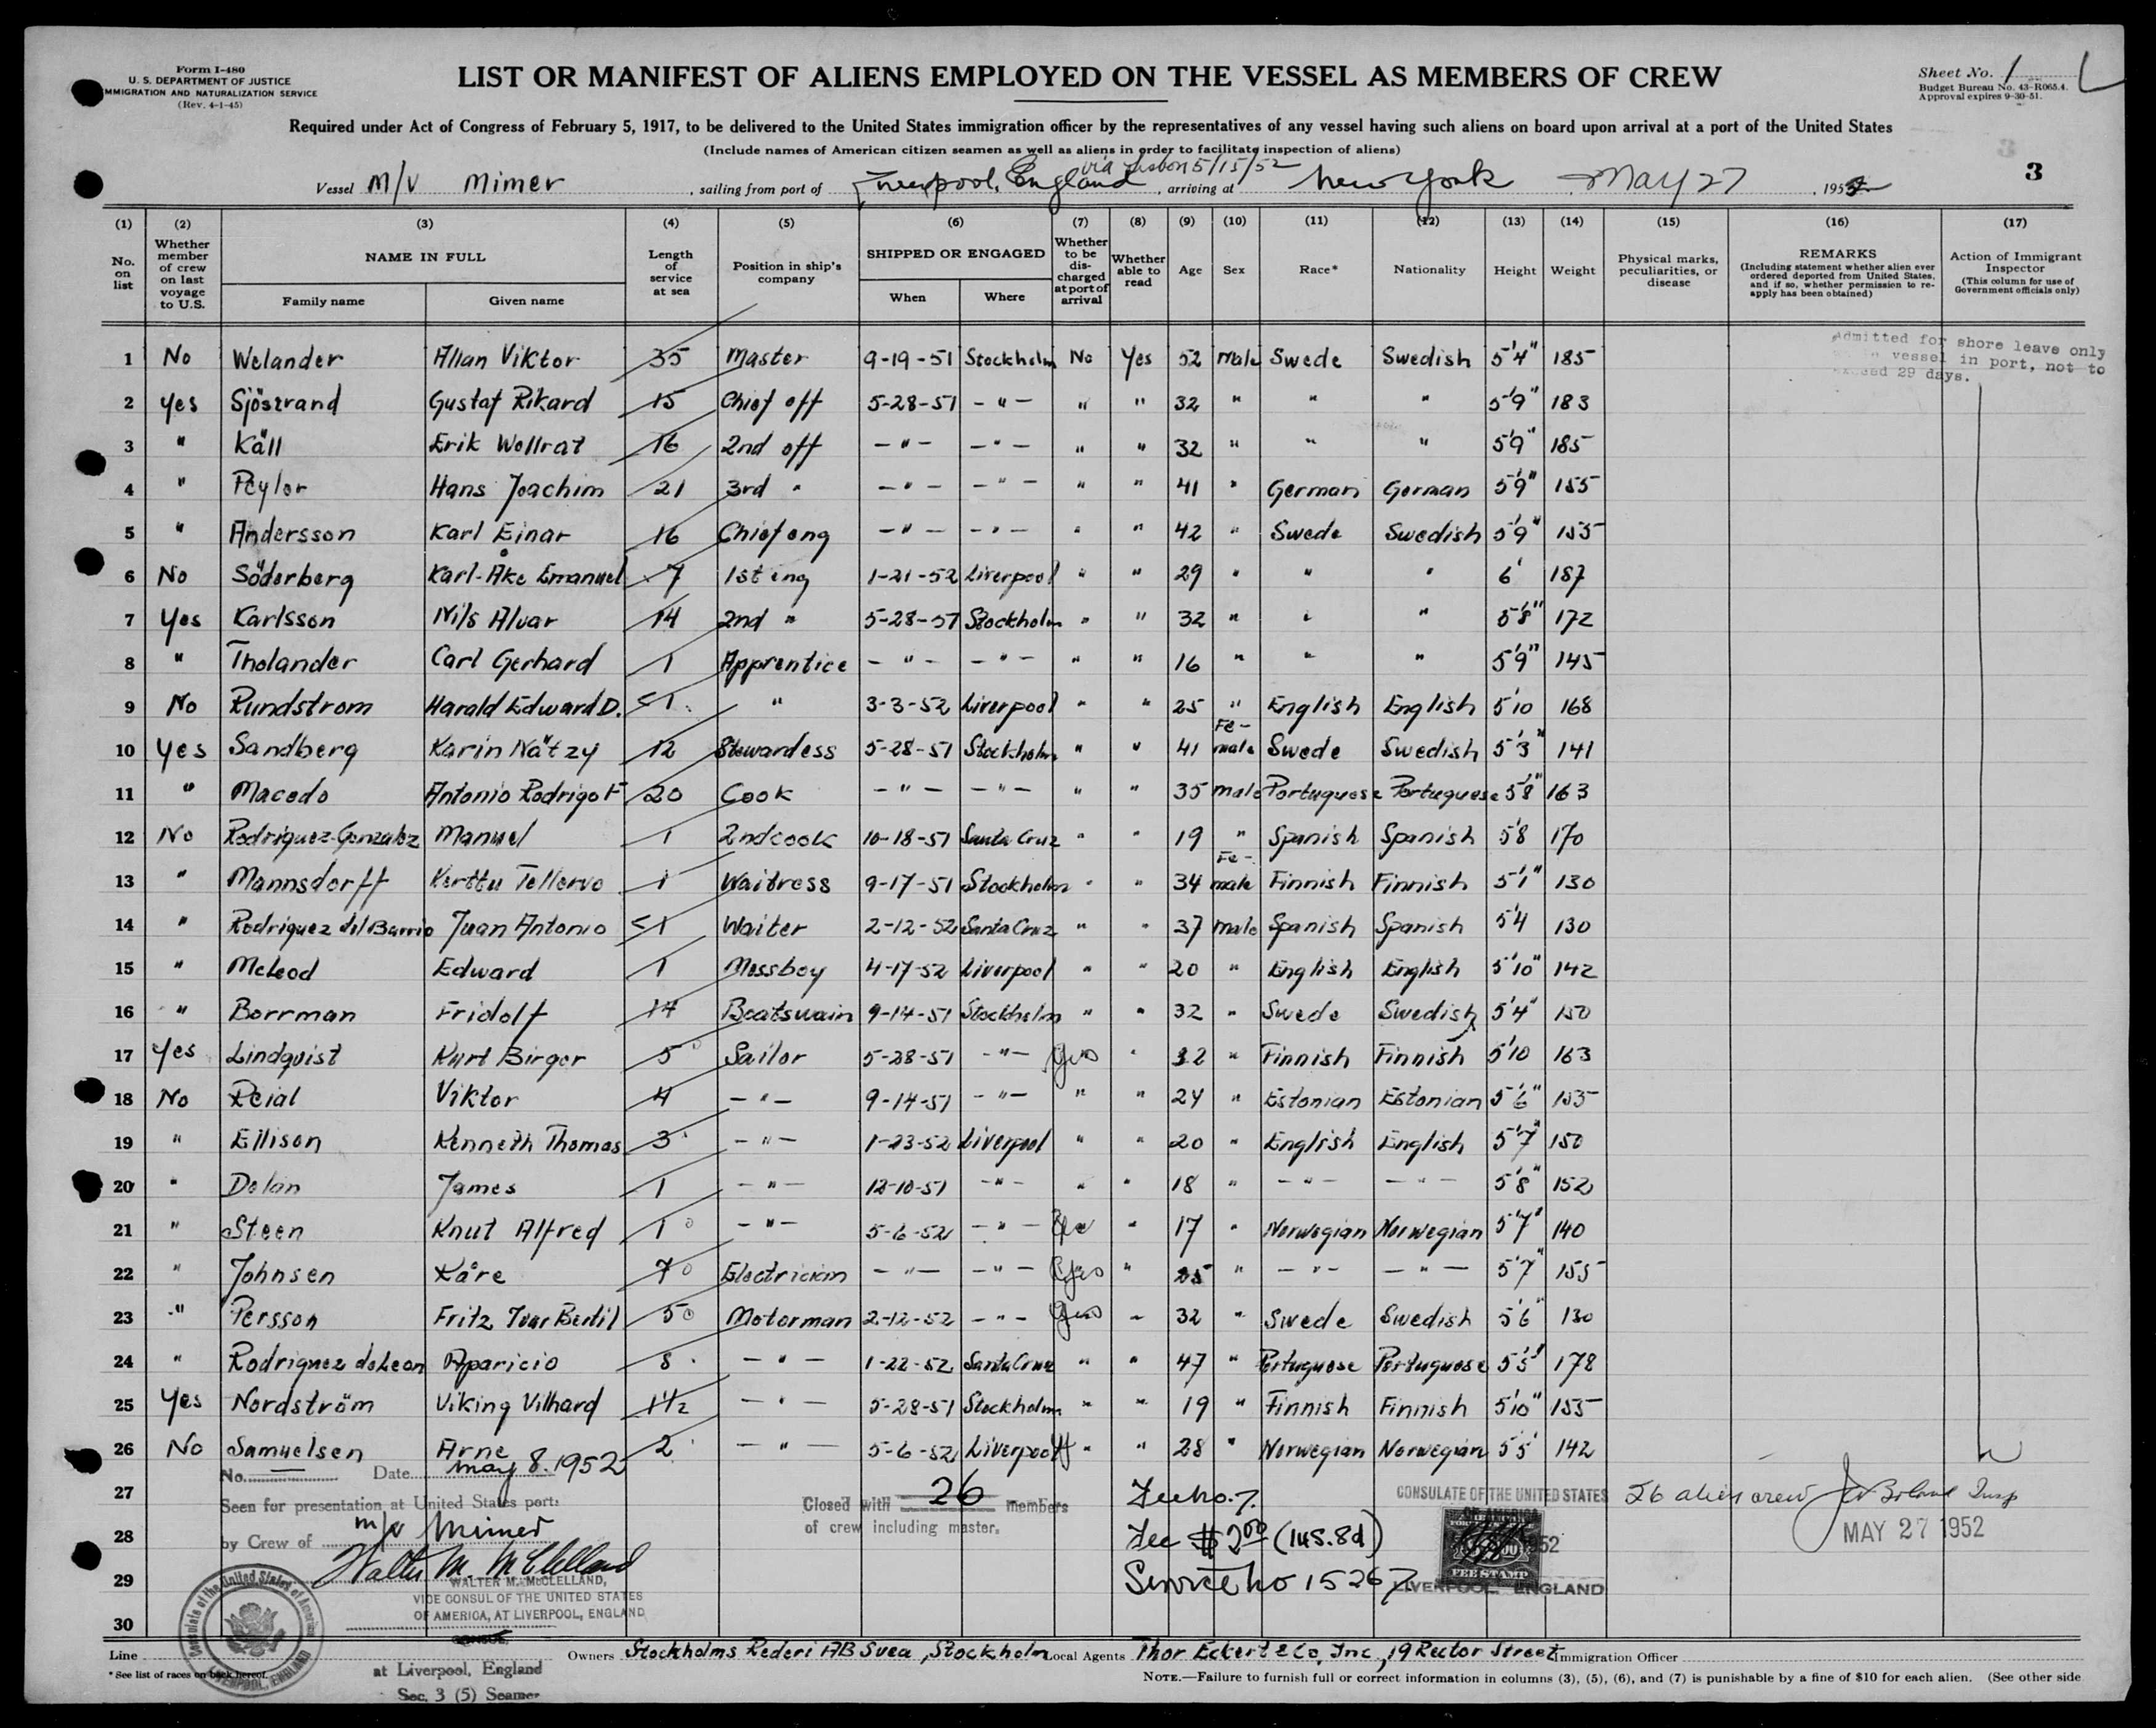 Form I-480
U. S. DEPARTMENT OF JUSTICE
IMMIGRATION AND NATURALIZATION SERVICE
(Rev. 4-1-45)
LIST OR MANIFEST OF ALIENS EMPLOYED ON THE VESSEL AS MEMBERS OF CREW
Sheet No. 1
Budget Bureau No. 43-R065.4.
Approval expires 9-30-51.
Required under Act of Congress of February 5, 1917, to be delivered to the United States immigration officer by the representatives of any vessel having such aliens on board upon arrival at a port of the United States
(Include names of American citizen seamen as well as aliens in order to facilitate inspection of aliens)
3
via Lisbon 5/15/52
Vessel M/V Mimer, sailing from port of Liverpool, England, arriving at New York May 27, 1952
(1) (2) (3) (4) (5) (6) (7) (8) (9) (10) (11) (12) (13) (14) (15) (16) (17)
No. on list
Whether member of crew on last voyage to U.S.
NAME IN FULL
Family name Given name
Length of service at sea
Position in ship's company
SHIPPED OR ENGAGED
When Where
Whether to be discharged at port of arrival
Whether able to read
Age Sex Race* Nationality Height Weight
Physical marks, peculiarities, or disease
REMARKS
(Including statement whether alien ever ordered deported from United States, and if so, whether permission to reapply has been obtained)
Action of Immigrant Inspector
(This column for use of Government officials only)
1 No Welander Allan Viktor 35 Master 9-19-51 Stockholm No Yes 52 Male Swede Swedish 5'4" 185
Admitted for shore leave only
vessel in port, not to
exceed 29 days.
2 Yes Sjöstrand Gustaf Rikard 15 Chief off 5-28-51 -"- " " 32 " " " 5'9" 183
3 " Käll Erik Wollrat 16 2nd off -"- -"- " " 32 " " " 5'9" 185
4 " Peylor Hans Joachim 21 3rd " -"- -"- " " 41 " German German 5'9" 155
5 " Andersson Karl Einar 16 Chief eng -"- -"- " " 42 " Swede Swedish 5'9" 155
6 No Söderberg Karl-Åke Emanuel 7 1st eng 1-21-52 Liverpool " " 29 " " " 6' 187
7 Yes Karlsson Nils Alvar 14 2nd " 5-28-51 Stockholm " " 32 " " " 5'8" 172
8 " Tholander Carl Gerhard 1 Apprentice -"- -"- " " 16 " " " 5'9" 145
9 No Rundstrom Harald Edward D. <1 " 3-3-52 Liverpool " " 25 " English English 5'10 168
10 Yes Sandberg Karin Nätzy 12 Stewardess 5-28-51 Stockholm " " 41 Fe-male Swede Swedish 5'3" 141
11 " Macedo Antonio Rodrigo F 20 Cook -"- -"- " " 35 Male Portuguese Portuguese 5'8" 163
12 No Rodriguez-Gonzalez Manuel 1 2nd cook 10-18-51 Santa Cruz " " 19 " Spanish Spanish 5'8 170
13 " Mannsdorff Kerttu Tellervo 1 Waitress 9-17-51 Stockholm " " 34 Fe-male Finnish Finnish 5'1" 130
14 " Rodriguez del Barrio Juan Antonio <1 Waiter 2-12-52 Santa Cruz " " 37 Male Spanish Spanish 5'4 130
15 " McLeod Edward 1 Messboy 4-17-52 Liverpool " " 20 " English English 5'10" 142
16 " Borrman Fridolf 14 Boatswain 9-14-51 Stockholm " " 32 " Swede Swedish 5'4" 150
17 Yes Lindqvist Kurt Birger 5 Sailor 5-28-51 -"- Yes " 32 " Finnish Finnish 5'10 163
18 No Reial Viktor 4 -"- 9-14-51 -"- " " 24 " Estonian Estonian 5'6" 155
19 " Ellison Kenneth Thomas 3 -"- 1-23-52 Liverpool " " 20 " English English 5'7" 150
20 " Dolan James 1 -"- 12-10-51 -"- " " 18 " -"- -"- 5'8" 152
21 " Steen Knut Alfred 1 -"- 5-6-52 -"- Yes " 17 " Norwegian Norwegian 5'7" 140
22 " Johnsen Kåre 7 Electrician -"- -"- Yes " 25 " -"- -"- 5'7" 155
23 " Persson Fritz Ivar Bertil 5 Motorman 2-12-52 -"- Yes " 32 " Swede Swedish 5'6" 130
24 " Rodriguez de Leon Aparicio 8 -"- 1-22-52 Santa Cruz " " 47 " Portuguese Portuguese 5'5" 178
25 Yes Nordström Viking Vilhard 1½ -"- 5-28-51 Stockholm " " 19 " Finnish Finnish 5'10" 155
26 No Samuelsen Arne 2 -"- 5-6-52 Liverpool " " 28 " Norwegian Norwegian 5'5" 142
No. — Date May 8. 1952
27
Seen for presentation at United States ports
Closed with 26 members
of crew including master.
Fee no. 7.
CONSULATE OF THE UNITED STATES
OF AMERICA
26 alien crew
28
by Crew of M/V Mimer
Fee $ 2.00 (14S.8d)
MAY 27 1952
29
Walter M. McClelland
WALTER M. McCLELLAND,
VICE CONSUL OF THE UNITED STATES
OF AMERICA, AT LIVERPOOL, ENGLAND
Service No 15267
FEE STAMP
LIVERPOOL ENGLAND
30
Consulate of the United States of America
LIVERPOOL, ENGLAND
Line
Owners Stockholms Rederi AB Svea, Stockholm Local Agents Thor Eckert & Co, Inc, 19 Rector Street Immigration Officer
* See list of races on back hereof.
at Liverpool, England
Sec. 3 (5) Seamen
NOTE.—Failure to furnish full or correct information in columns (3), (5), (6), and (7) is punishable by a fine of $10 for each alien. (See other side